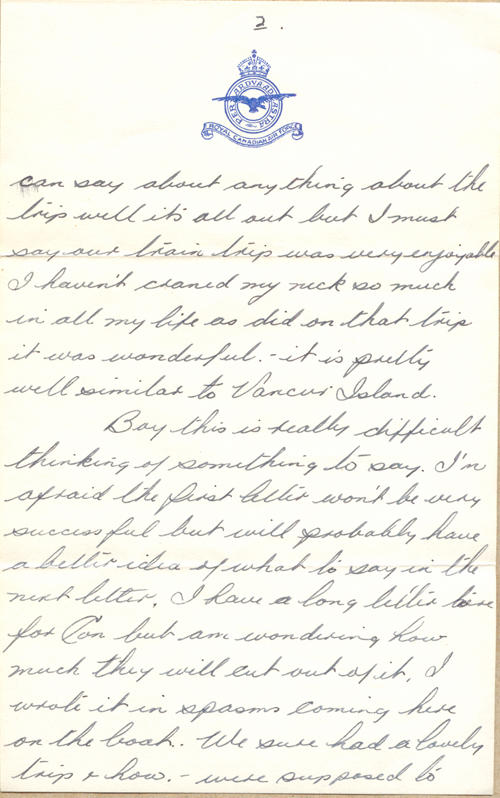 2.
PER ARDVA AD ASTRA
ROYAL CANADIAN AIR FORCE
can say about any thing about the
trip well it's all out but I must
say our train trip was very enjoyable
I haven't craned my neck so much
in all my life as did on that trip
it was wonderful. - it is pretty
well similar to Vancuvr Island.
Boy this is really difficult
thinking of something to say. I'm
afraid the first letter won't be very
successful but will probably have
a better idea of what to say in the
next letter. I have a long letter here
for Con but am wondering how
much they will cut out of it. I
wrote it in spasms coming here
on the boat. We sure had a lovely
trip & how. - were supposed to